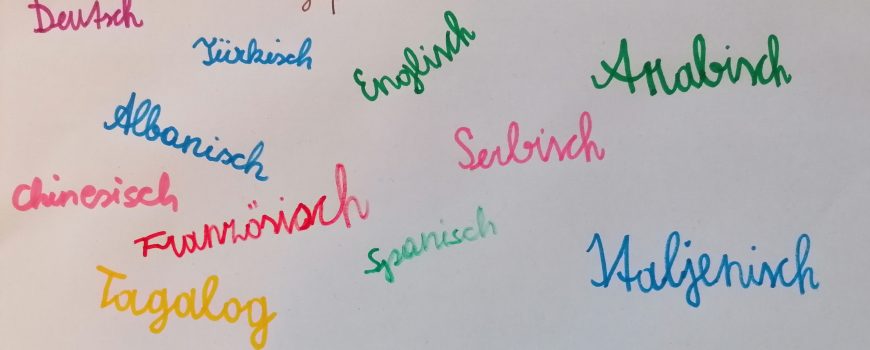 Deutsch
Türkisch
Englisch
Arabisch
Albanisch
Serbisch
Chinesisch
Französisch
Spanisch
Italjenisch
Tagalog